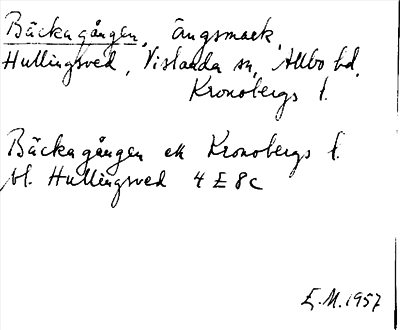 Bäckagången, Ängsmark,
Hullingsved, Vislanda sn, Allbo hd,
Kronobergs l.
Bäckagången ek Kronobergs l.
bl. Hullingsved 4 E 8 c
E.M. 1957